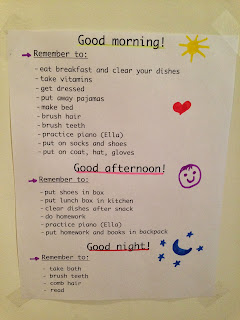 Good morning!
Remember to:
- eat breakfast and clear your dishes
- take vitamins
- get dressed
- put away pajamas
- make bed
- brush hair
- brush teeth
- practice piano (Ella)
- put on socks and shoes
- put on coat, hat, gloves
Good afternoon!
Remember to:
- put shoes in box
- put lunch box in kitchen
- clear dishes after snack
- do homework
- practice piano (Ella)
- put homework and books in backpack
Good night!
Remember to:
- take bath
- brush teeth
- comb hair
- read